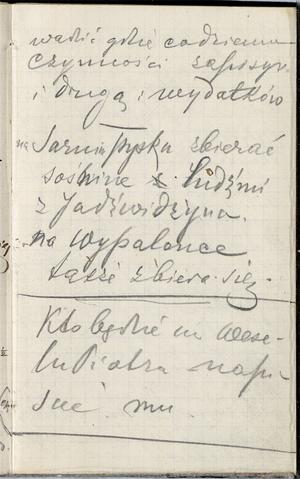 wadić gdzie codzienne
czynności zapisyw
i drugą i wydatków
na Sarnia Pyska zbierać
sośninę z ludźmi
z Jadźwidzyna.
na wypalonce
także zbiera się.
Kto będzie na wese-
lu Piotra napi-
sać mu